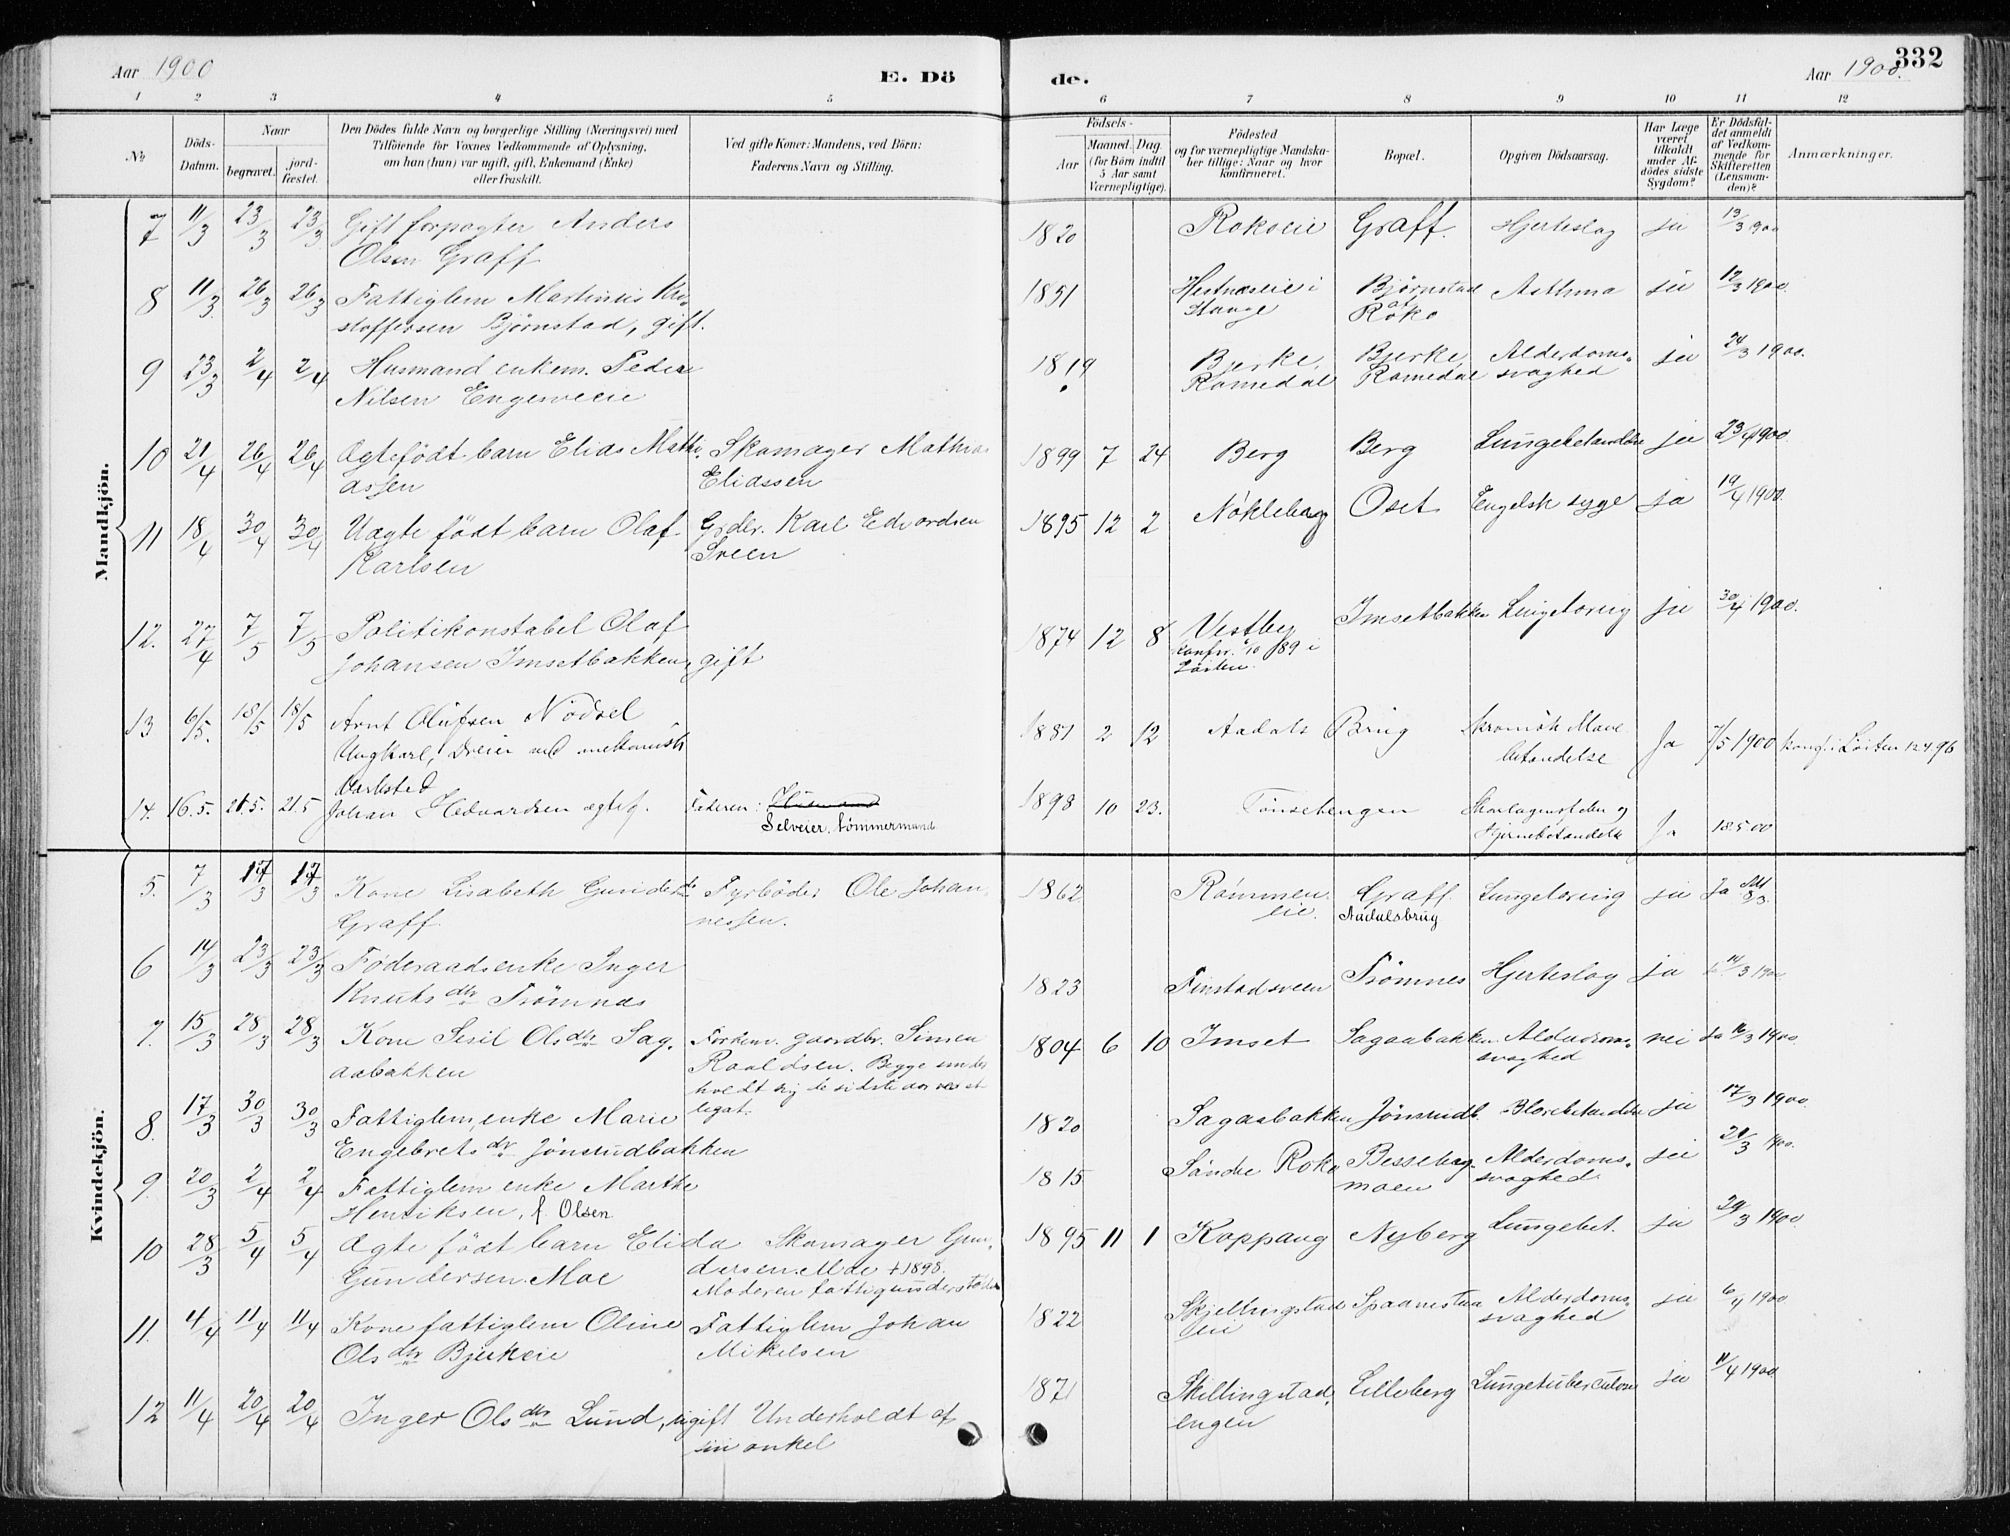 Aar 1900 E. Dö
de. Aar 1900. 332
1 2 3 4 5 6 7 8 9 10 11 12
№
Döds-Datum.
Naar
begravet.
jord-fæstet.
Den Dödes fulde Navn og borgerlige Stilling (Næringsvei) med
Tilföiende for Voxnes Vedkommende af Oplysning,
om han (hun) var ugift, gift, Enkemand (Enke)
eller fraskilt.
Ved gifte Koner: Mandens, ved Börn:
Faderens Navn og Stilling.
Födsels-
Aar
Maaned. Dag
(for Börn indtil
5 Aar samt
Værnepligtige).
Födested
og for værnepligtige Mandska-
ber tillige: Naar og hvor
konfirmeret.
Bopæl.
Opgiven Dödsaarsag.
Har Læge
været
tilkaldt
under Af-
dödes sidste
Sygdom?
Er Dödsfal-
det anmeldt
af Vedkom-
mende for
Skifteretten
(Lensman-
den)?
Anmærkninger.
Mandkjön.
7 11/3 23/3 23/3 Gift forpagter Anders 1820 Rokoeie Graff. Hjerteslag ja 13/3 900
Olsen Graff
8 11/3 26/3 26/3 Fattiglem Martinus Kri- 1851 Hestnæseie i Bjørnstad Asthma ja 12/3 1900.
stoffersen Bjørnstad, gift. Stange at Roko
9 23/3 2/4 2/4 Husmand enkem. Peder 1819 Bjerke, Bjerke, Alderdoms- ja 24/3 1900.
Nilsen Engesveeie Romedal Romedal svaghed
10 21/4 26/4 26/4 Ægtefödt barn Elias Mathi- Skomager Mathias 1899 7 24 Berg Berg Lungebetændelse ja 23/4 1900.
assen Eliassen
11 18/4 30/4 30/4 Uægte födt barn Olaf Karl Edvardsen 1895 12 2 Nökleberg Oset Engelsk syge ja 19/4 1900.
Karlsen Sveen
12. 27/4 7/5 7/5 Politikonstabel Olaf 1874 12 8 Vestby Imsetbakken Lungetæring ja 30/4 1900.
Johansen Imsetbakken, gift konfir. 89 i
Løiten.
13 6/5. 18/5 18/5 Arnt Olufsen Nödsel 1881 2 12 Aadals Brug Kronisk Mave- Ja 7/5 1900 konf. i Løiten 12 4 96
Ungkarl, Dreier ved mekanisk betændelse
Værksted
14. 16.5. 21.5. 21.5 Johan Hedvardsen ægtef. Faderen: Husmand 1898 10 23. Tönsetengen Skarlagensfeber og Ja 18.5 00
Selveier, tømmermand Hjernebetændelse
Kvindekjön.
5. 7/3 17/3 17/3 Kone Lisabeth Gundersd. Fyrböder Ole Johan- 1862 Römmen- Graff. Lungetæring ja Ja 8/3
Graff. nessen. eie. Aadalsbrug
6 14/3 23/3 23/3 Föderaadsenke Inger 1823 Finstadsveen Trömnes Hjerteslag ja 14/3 1900.
Knuts dtr Trömnæs
7. 15/3 28/3 28/3 Kone Sisil Ols dtr Sag- Forhenv. gaardbr. Simen 1804 6 10 Imset Sagaabakken Alderdoms- nei Ja 16/3 1900.
aabakken Raaldsen. Begge under- svaghed
holdt sig de sidste aar ved et
legat.
8. 17/3 30/3 30/3 Fattiglem, enke Marie 1820 Sagaabakken Jönsrudb. Blærebetændelse ja 17/3 1900.
Engebrets dtr Jönsrudbakken
9. 20/3 2/4 2/4 Fattiglem enke Marthe 1815 Söndre Roko Besseberg- Alderdoms- ja 20/3 1900.
Henriksen, f. Olsen moen svaghed.
10 28/3 5/4 5/4 Ægte födt barn Elida Skomager Gun- 1895 11 1 Koppang Nyberg Lungebet. ja 29/3 1900.
Gundersen Moe dersen Moe + 1898.
Moderen fattigunderstöttet
11. 4/4 11/4 11/4 Kone fattiglem Oline Fattiglem Johan 1822 Skjelbergstad- Spaanestua Alderdoms- ja 6/4 1900
Ols dtr Bjerkeeie Mikelsen eie svaghed
12 11/4 20/4 20/4 Inger Ols dtr Lund, ugift Underholdt af 1871 Skillingstad- Lilleberg Lungetuberculose ja 11/4 1900
sin onkel engen